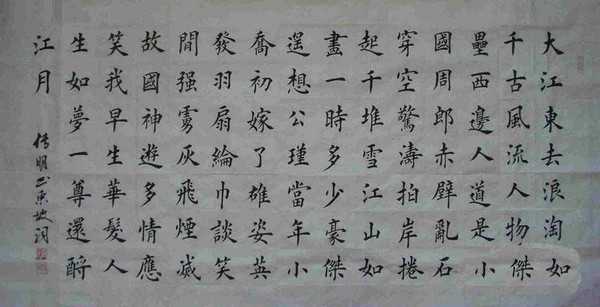 大江東去浪淘如
千古風流人物傑
壘西邊人道是小
國周郎赤壁亂石
穿空驚濤拍岸捲
起千堆雪江山如
畫一時多少豪傑
遥想公瑾當年小
喬初嫁了雄姿英
發羽扇綸巾談笑
間强虜灰飛煙滅
故國神遊多情應
笑我早生華髮人
生如夢一尊還酹
江月
书东坡词